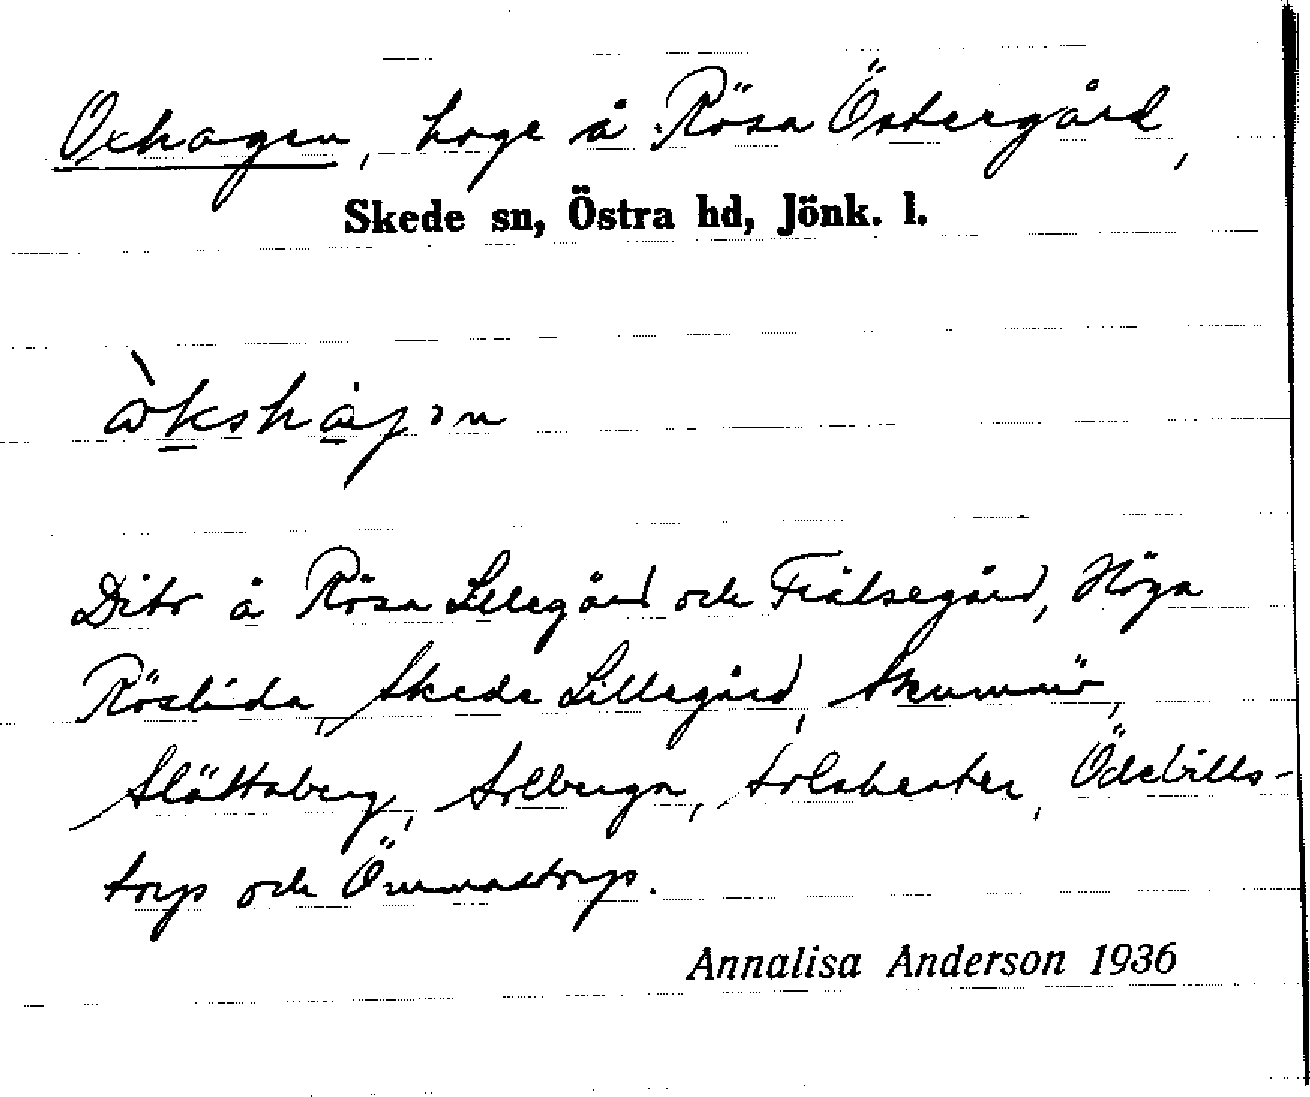 Oxhagen, hage å Rösa Östergård,
Skede sn, Östra hd, Jönk. l.
Dito å Rösa Lillegård och Frälsegård, Höga
Röslida, Skede Lillegård, Skummör,
Slättaberg, Solberga, Ödebills-
torp och Ömmastorp.
Annalisa Anderson 1936